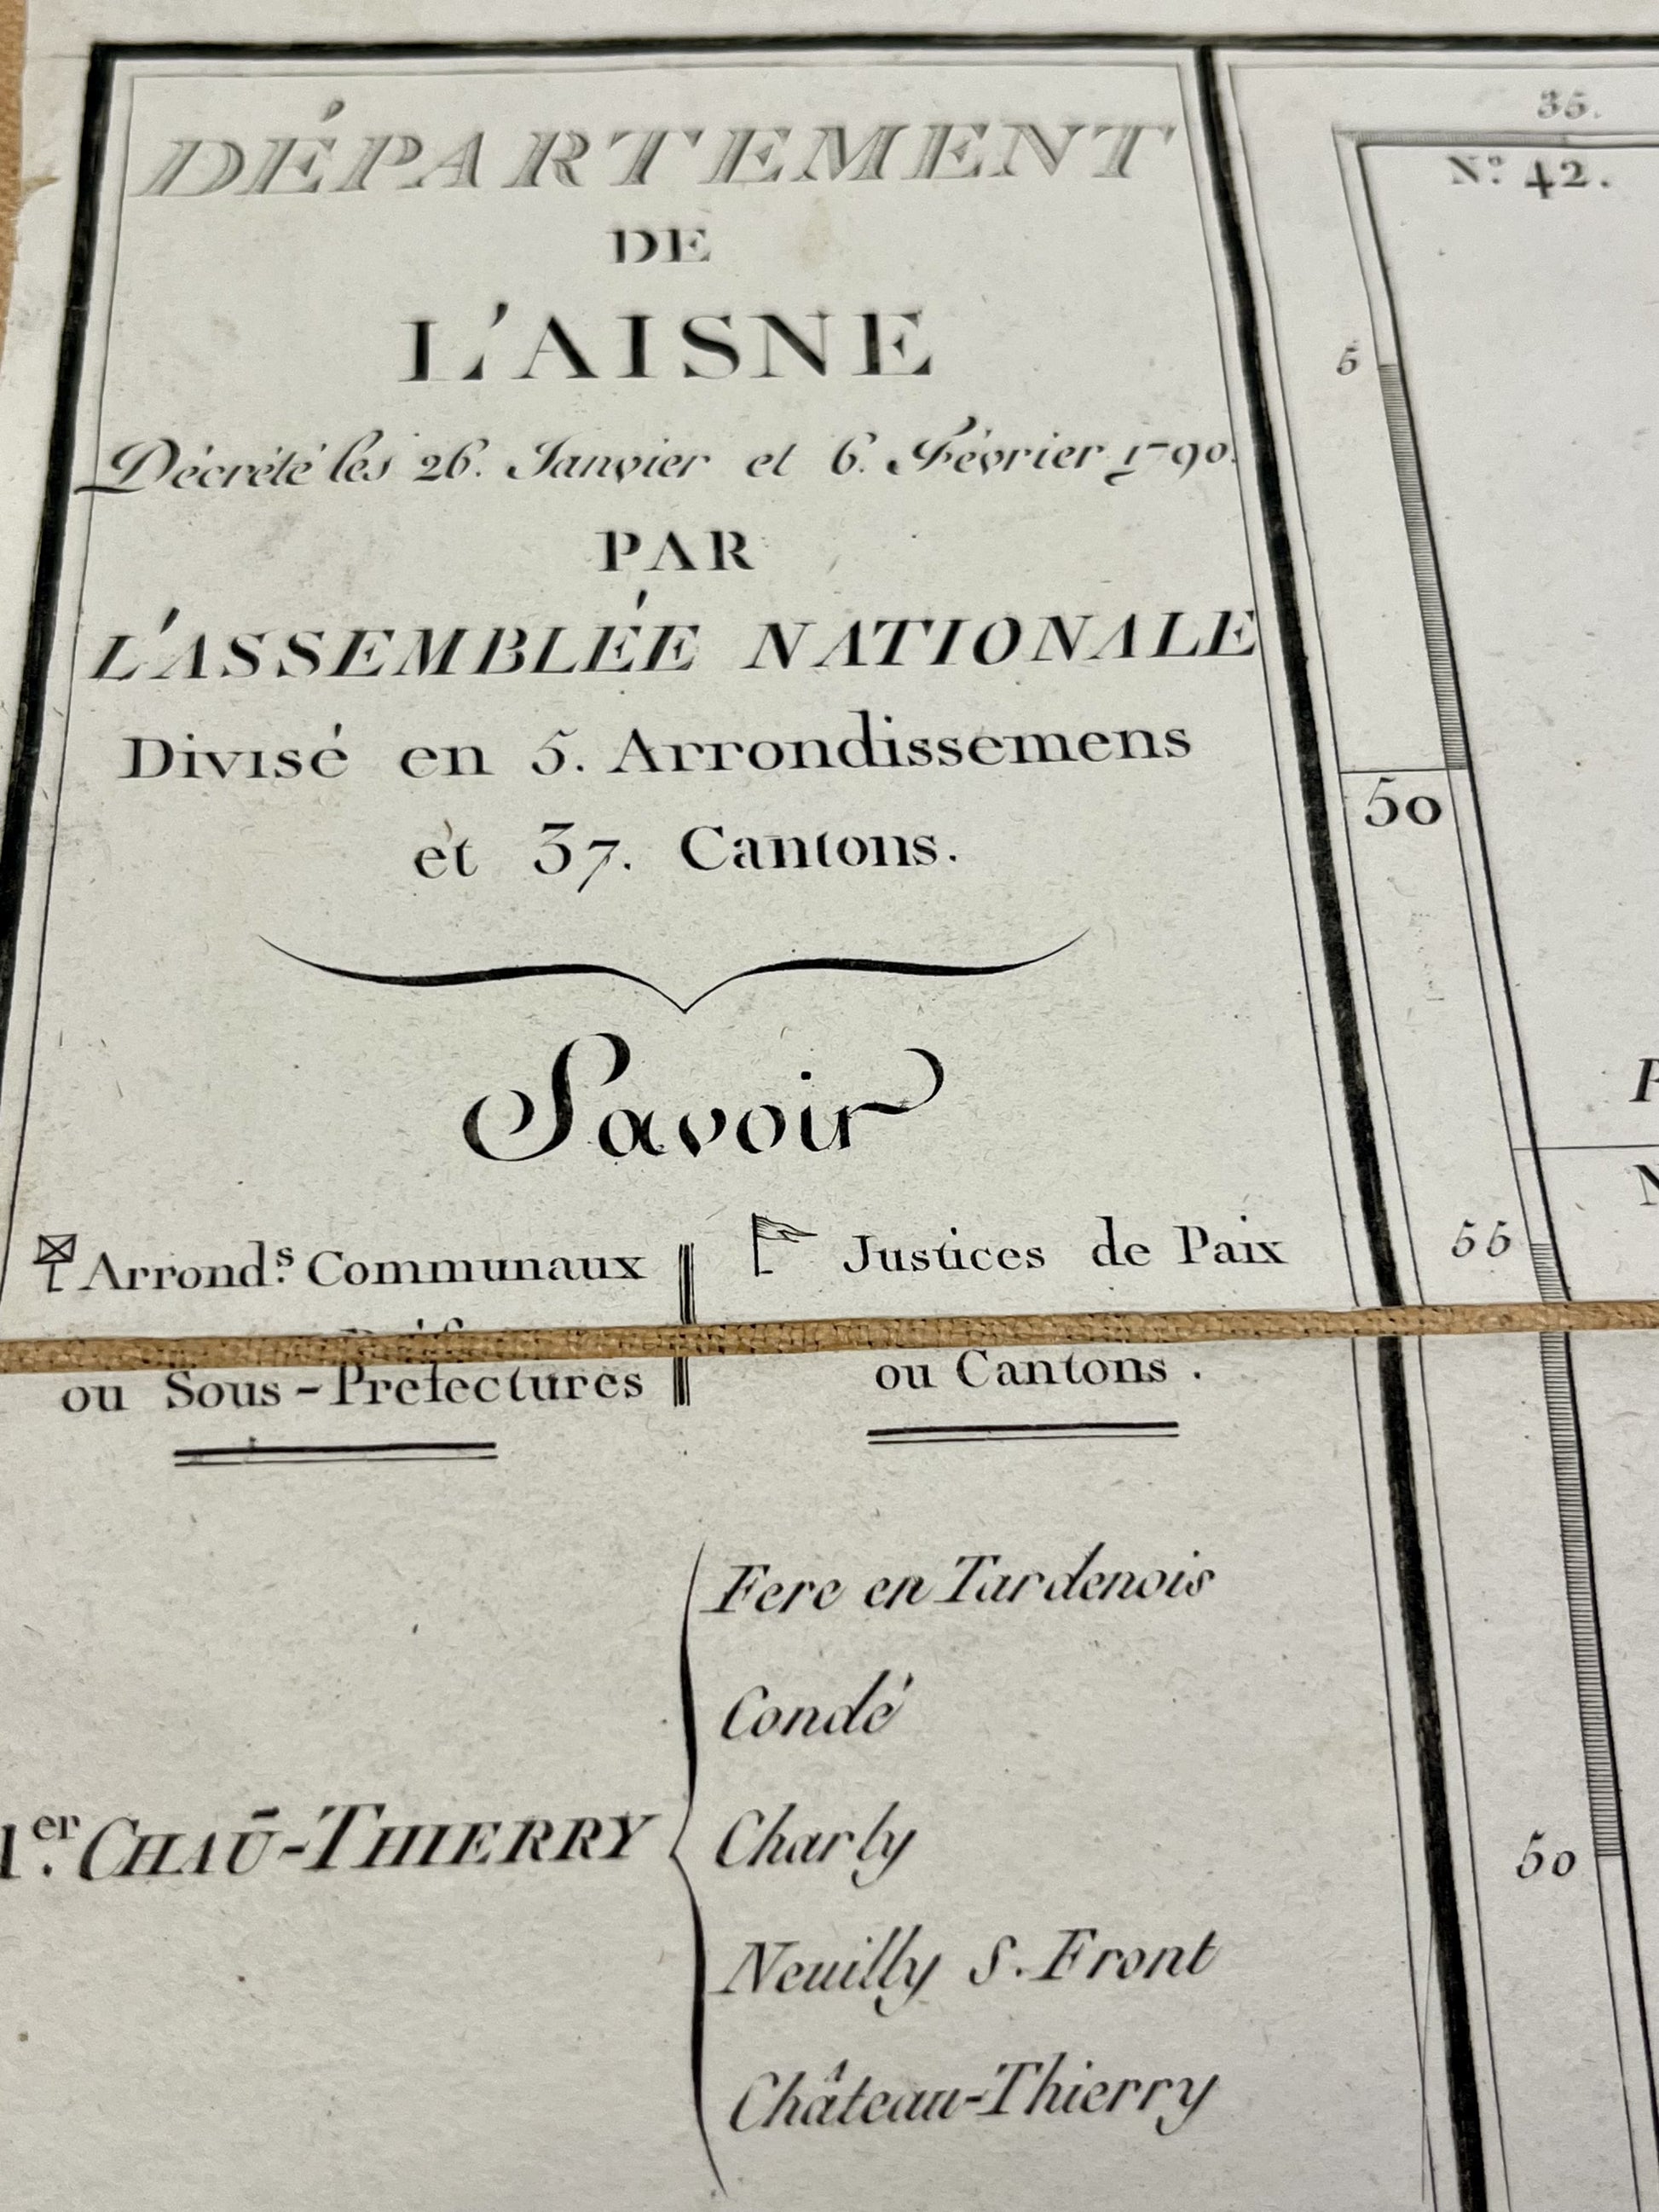 DÉPARTEMENT
DE
L'AISNE
Décrété les 26. Janvier et 6. Février 1790.
PAR
L'ASSEMBLÉE NATIONALE
Divisé en 5. Arrondissemens
et 37. Cantons.
Savoir
Arrond.s Communaux
ou Sous-Préfectures
Justices de Paix
ou Cantons.
1.er CHAŪ-THIERRY
Fere en Tardenois
Condé
Charly
Neuilly S. Front
Château-Thierry
35.
N.o 42.
5
50
55
50